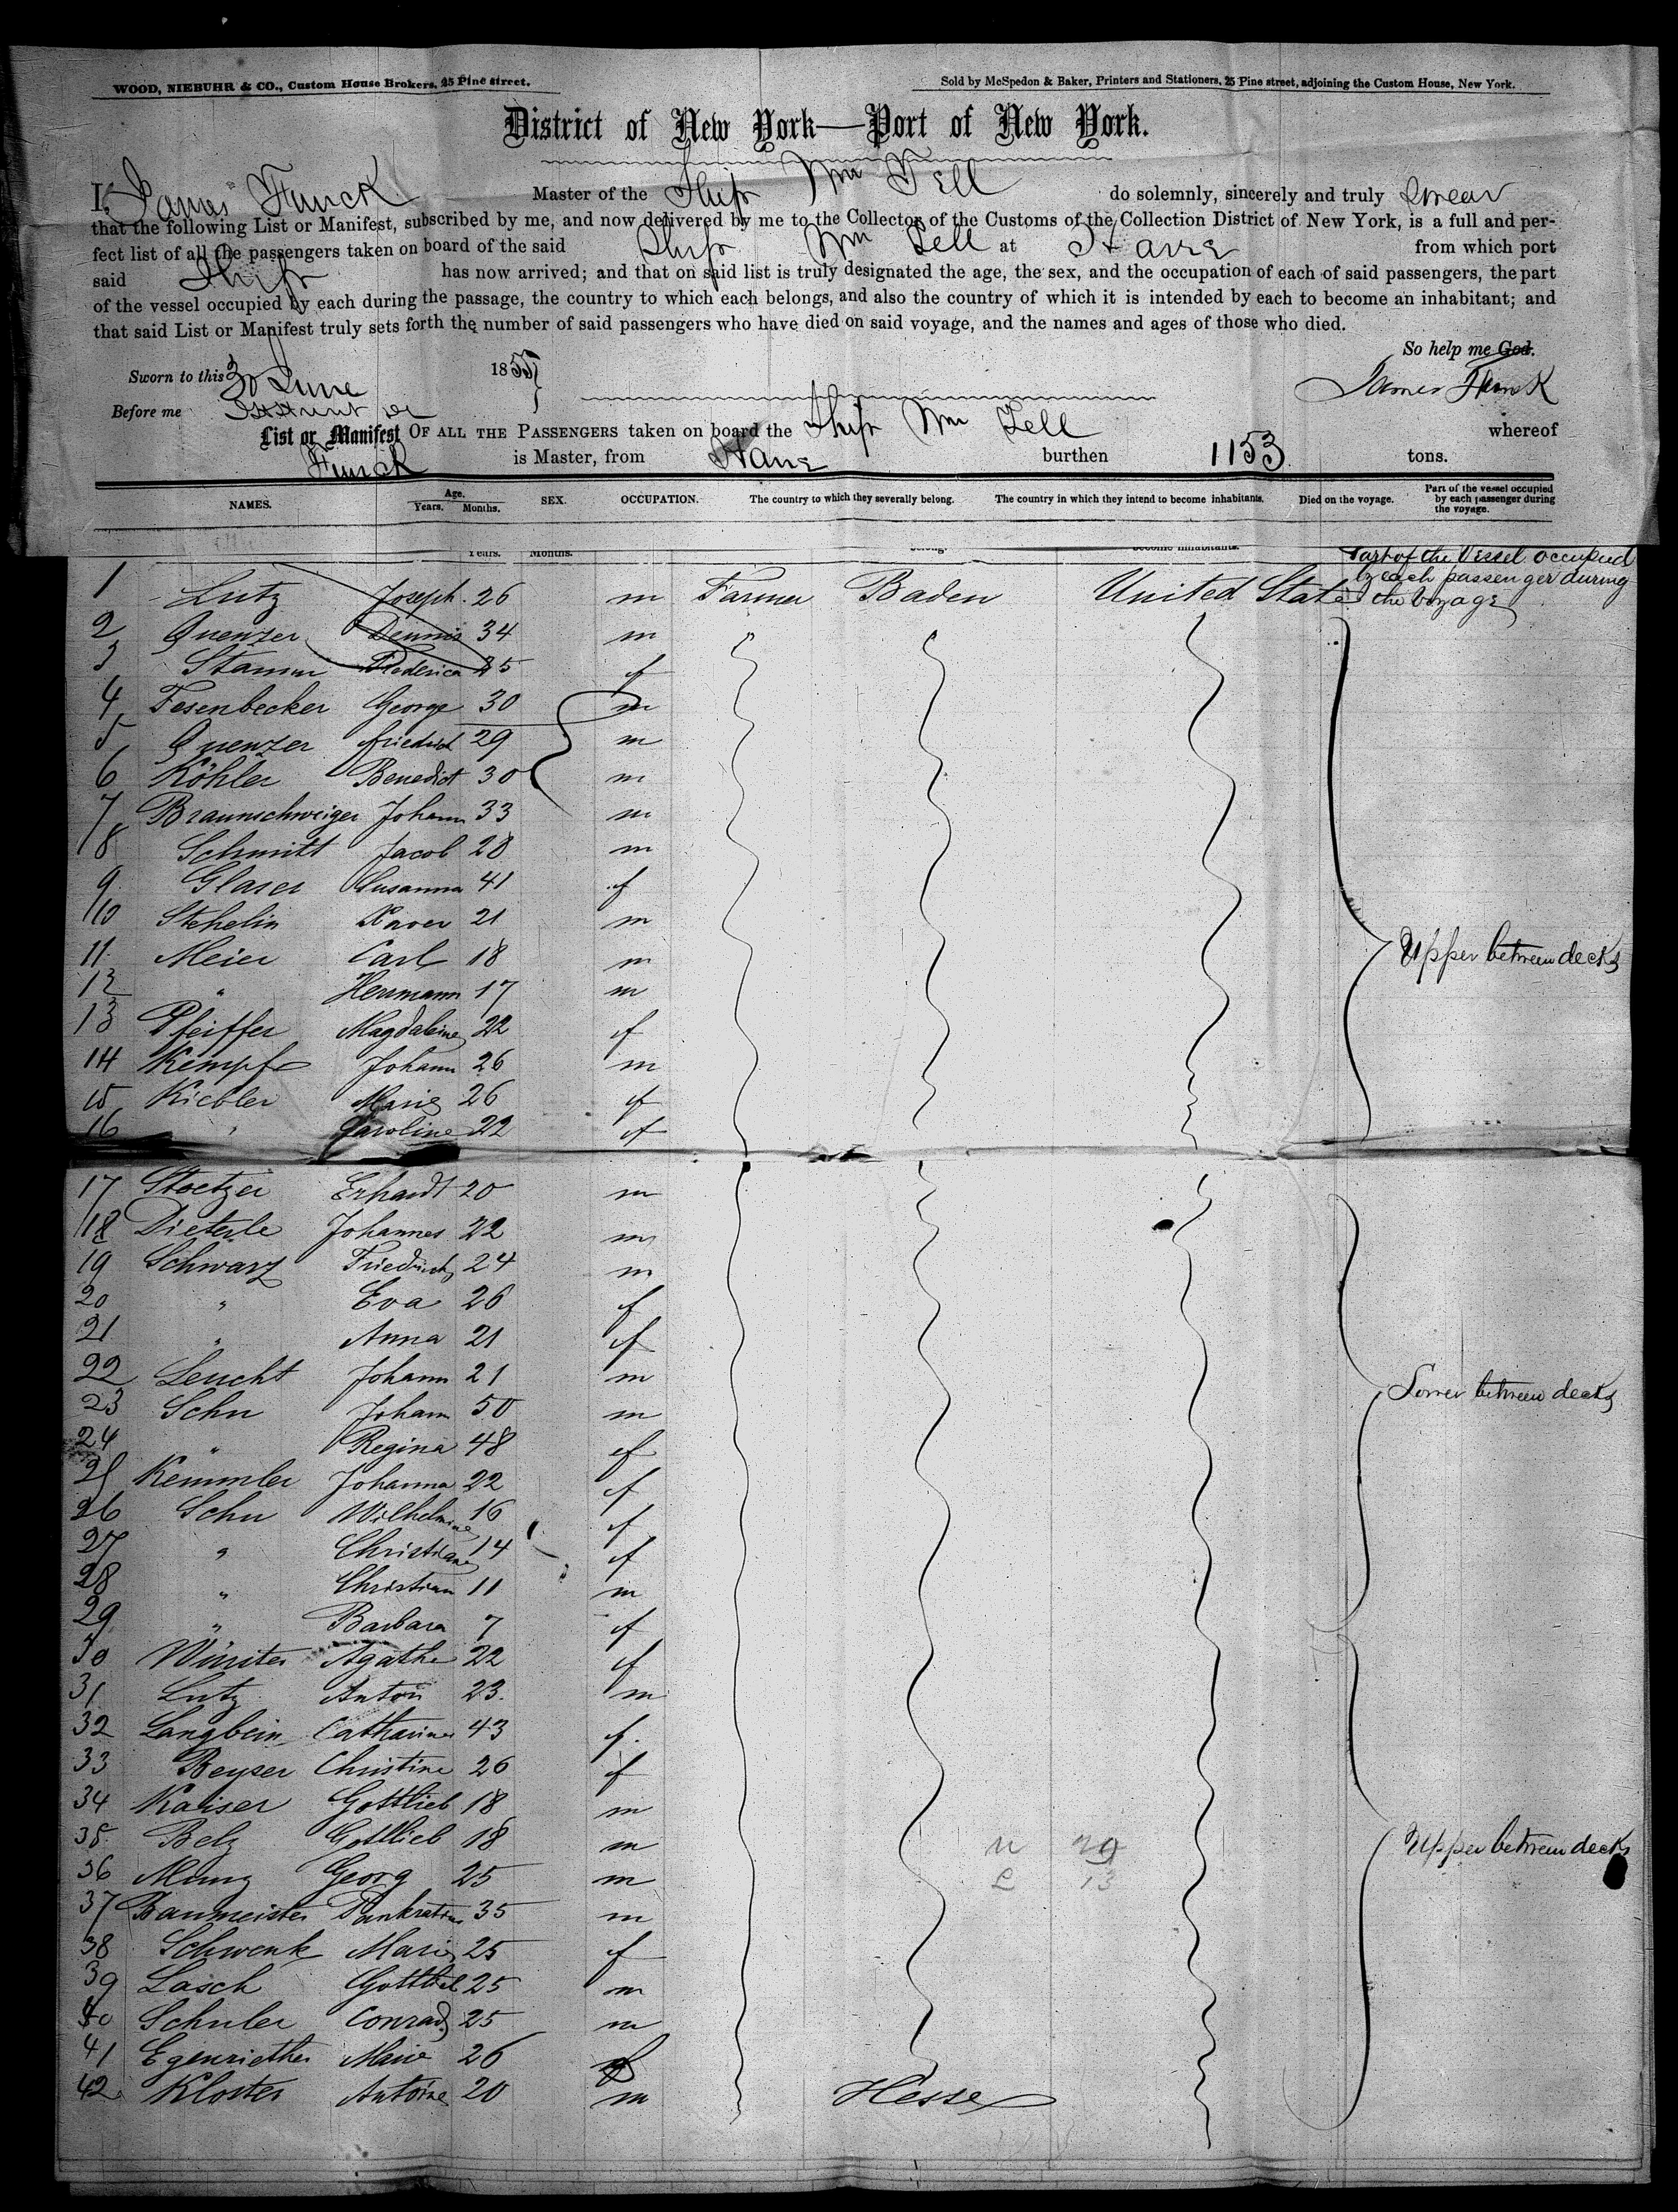 WOOD, NIEBUHR & CO., Custom House Brokers, 25 Pine street.
Sold by McSpedon & Baker, Printers and Stationers, 25 Pine street, adjoining the Custom House, New York.
District of New York—Port of New York.
I, James Funck Master of the Ship Wm Tell do solemnly, sincerely and truly swear
that the following List or Manifest, subscribed by me, and now delivered by me to the Collector of the Customs of the Collection District of New York, is a full and per-
fect list of all the passengers taken on board of the said Ship Wm Tell at Havre from which port
said Ship has now arrived; and that on said list is truly designated the age, the sex, and the occupation of each of said passengers, the part
of the vessel occupied by each during the passage, the country to which each belongs, and also the country of which it is intended by each to become an inhabitant; and
that said List or Manifest truly sets forth the number of said passengers who have died on said voyage, and the names and ages of those who died.
So help me God.
Sworn to this 30 June 1855
James Funck
Before me
List or Manifest OF ALL THE PASSENGERS taken on board the Ship Wm Tell whereof
Funck is Master, from Havre burthen 1153 tons.
NAMES. Age. Years. Months. SEX. OCCUPATION. The country to which they severally belong. The country in which they intend to become inhabitants. Died on the voyage. Part of the vessel occupied by each passenger during the voyage.
Years. Months. belong. become inhabitants. Part of the Vessel occupied
by each passenger during
the Voyage
1 Lutz Joseph 26 m Farmer Baden United States
2 Quenzer Dennis 34 m
3 Stamm Frederica 25 f
4 Fesenbecker George 30 m
5 Quenzer friedrich 29 m
6 Köhler Benedict 30 m
7 Braunschweiger Johann 33 m
8 Schmitt Jacob 28 m
9 Glaser Susanna 41 f
10 Stehelin Xaver 21 m
11 Meier Carl 18 m Upper between decks
12 " Hermann 17 m
13 Pfeiffer Magdaleine 22 f
14 Kempf Johann 26 m
15 Kiebler Marie 26 f
16 " Caroline 22 f
17 Stoetzer Erhardt 20 m
18 Dieterle Johannes 22 m
19 Schwarz Friedrich 24 m
20 " Eva 26 f
21 " Anna 21 f
22 Leucht Johann 21 m Lower between decks
23 Schu Johann 50 m
24 " Regina 48 f
25 Kemmler Johanna 22 f
26 Schu Wilhelmine 16 f
27 " Christiane 14 f
28 " Christian 11 m
29 " Barbara 7 f
30 Winster Agathe 22 f
31 Lutz Anton 23 m
32 Langbein Catharina 43 f
33 Beyser Christine 26 f
34 Kaiser Gottlieb 18 m
35 Belz Gottlieb 18 m U 29 Upper between decks
36 Munz Georg 25 m L 13
37 Baumeister Pankratius 35 m
38 Schwenk Marie 25 f
39 Lasch Gottlieb 25 m
40 Schuler Conrad 25 m
41 Egenriether Marie 26 f
42 Kloster Antoine 20 m Hesse